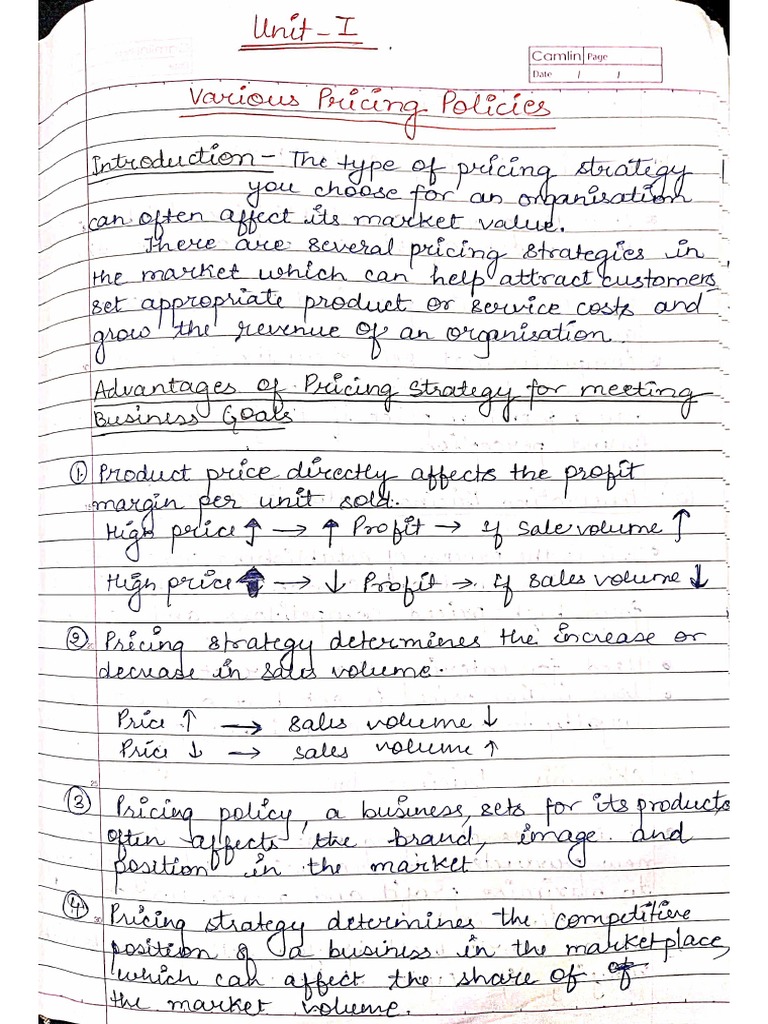 Unit - I
Camlin Page
Date / /
Various Pricing Policies
Introduction - The type of pricing strategy
you choose for an organisation
can often affect its market value.
There are several pricing strategies in
the market which can help attract customers,
set appropriate product or service costs and
grow the revenue of an organisation.
Advantages of Pricing Strategy for meeting
Business Goals
① Product price directly affects the profit
margin per unit sold.
High price ↑ → ↑ Profit → If Sale volume ↑
High price ↑ → ↓ Profit → If sales volume ↓
② Pricing strategy determines the increase or
decrease in sales volume.
Price ↑ → sales volume ↓
Price ↓ → sales volume ↑
25
③ Pricing policy, a business, sets for its products
often affects the brand, image and
position in the market
④ Pricing strategy determines the competitive
position of a business in the marketplace,
which can affect the share of of
the market volume.